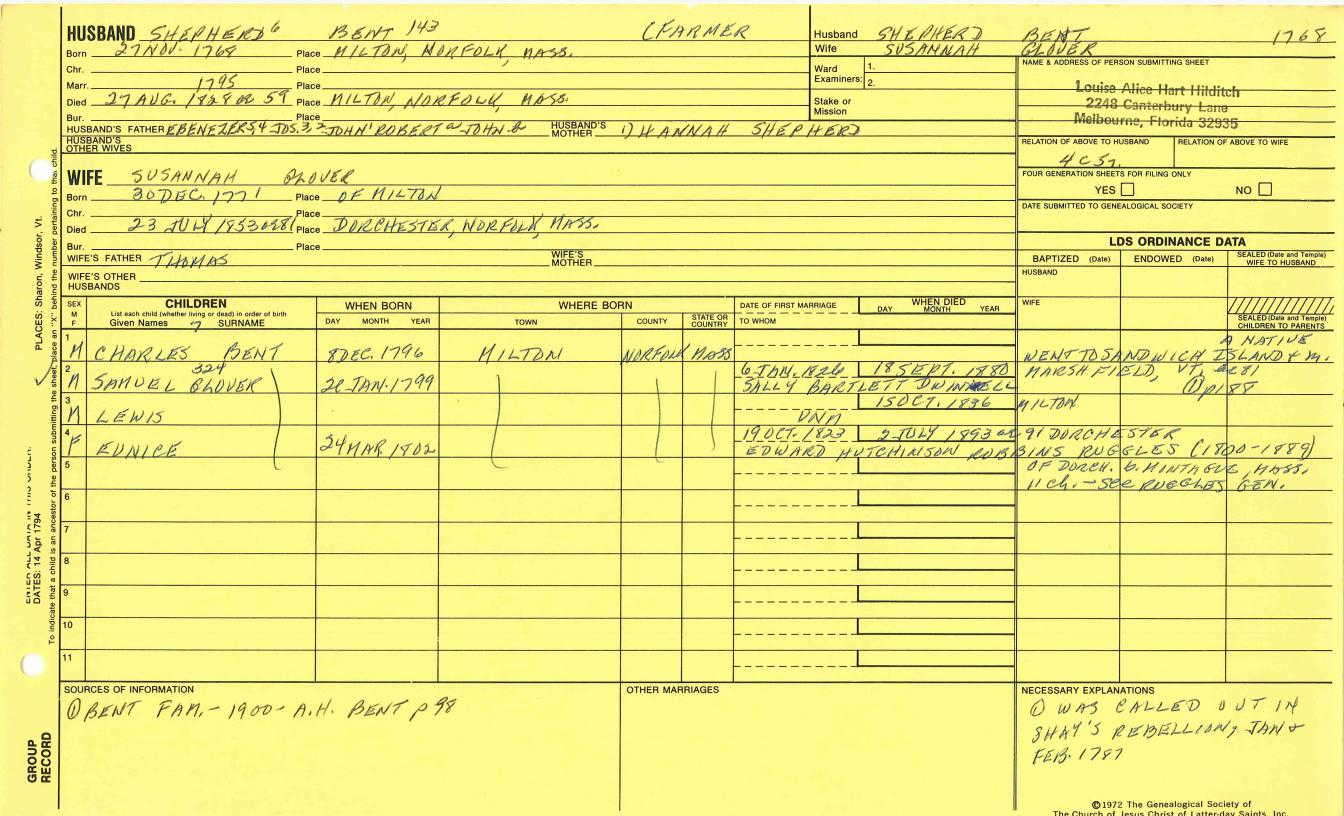 HUSBAND SHEPHERD⁶ BENT 143 (FARMER
Born 27 NOV. 1768 Place MILTON, NORFOLK, MASS.
Chr. Place
Marr. 1795 Place
Died 27 AUG. 1828 or 59 Place MILTON, NORFOLK, MASS.
Bur. Place
HUSBAND'S FATHER EBENEZER JOS. JOHN ROBERT JOHN HUSBAND'S MOTHER 1) HANNAH SHEPHERD
HUSBAND'S OTHER WIVES
Husband SHEPHERD BENT 1768
Wife SUSANNAH GLOVER
Ward Examiners: 1.
2.
Stake or Mission
NAME & ADDRESS OF PERSON SUBMITTING SHEET
Louise Alice Hart Hilditch
2248 Canterbury Lane
Melbourne, Florida 32935
RELATION OF ABOVE TO HUSBAND RELATION OF ABOVE TO WIFE
4 C 5 r.
FOUR GENERATION SHEETS FOR FILING ONLY
YES NO
DATE SUBMITTED TO GENEALOGICAL SOCIETY
WIFE SUSANNAH GLOVER
Born 30 DEC. 1771 Place OF MILTON
Chr. Place
Died 23 JULY 1853 or 81 Place DORCHESTER, NORFOLK, MASS.
Bur. Place
WIFE'S FATHER THOMAS WIFE'S MOTHER
WIFE'S OTHER HUSBANDS
LDS ORDINANCE DATA
BAPTIZED (Date) ENDOWED (Date) SEALED (Date and Temple) WIFE TO HUSBAND
HUSBAND
WIFE
SEALED (Date and Temple) CHILDREN TO PARENTS
SEX M F CHILDREN WHEN BORN WHERE BORN DATE OF FIRST MARRIAGE WHEN DIED
List each child (whether living or dead) in order of birth DAY MONTH YEAR
Given Names 7 SURNAME DAY MONTH YEAR TOWN COUNTY STATE OR COUNTRY TO WHOM
1 A NATIVE
M CHARLES BENT 8 DEC. 1796 MILTON NORFOLK MASS WENT TO SANDWICH ISLAND & m.
2 324 6 JAN. 1826 18 SEPT. 1880 MARSHFIELD, VT,
M SAMUEL GLOVER 20 JAN. 1799 SALLY BARTLETT DWINNELL ① p188
3 15 OCT. 1836 MILTON
M LEWIS UNM
4 19 OCT. 1823 2 JULY 1893 or 91 DORCHESTER
F EUNICE 24 MAR 1802 EDWARD HUTCHINSON ROBBINS RUGGLES (1800-1889)
5 OF DORCH. b. MINTAGUE, MASS.
6 11 ch. - SEE RUGGLES GEN.
7
8
9
10
11
SOURCES OF INFORMATION
① BENT FAM. - 1900 - A.H. BENT p 98
OTHER MARRIAGES
NECESSARY EXPLANATIONS
① WAS CALLED OUT IN
SHAY'S REBELLION, JAN &
FEB. 1787
©1972 The Genealogical Society of
The Church of Jesus Christ of Latter-day Saints, Inc.
PLACES: Sharon, Windsor, Vt.
ENTER ALL DATA IN THIS ORDER:
DATES: 14 Apr 1794
To indicate that a child is an ancestor of the person submitting the sheet, place an "X" behind the number pertaining to that child.
GROUP
RECORD